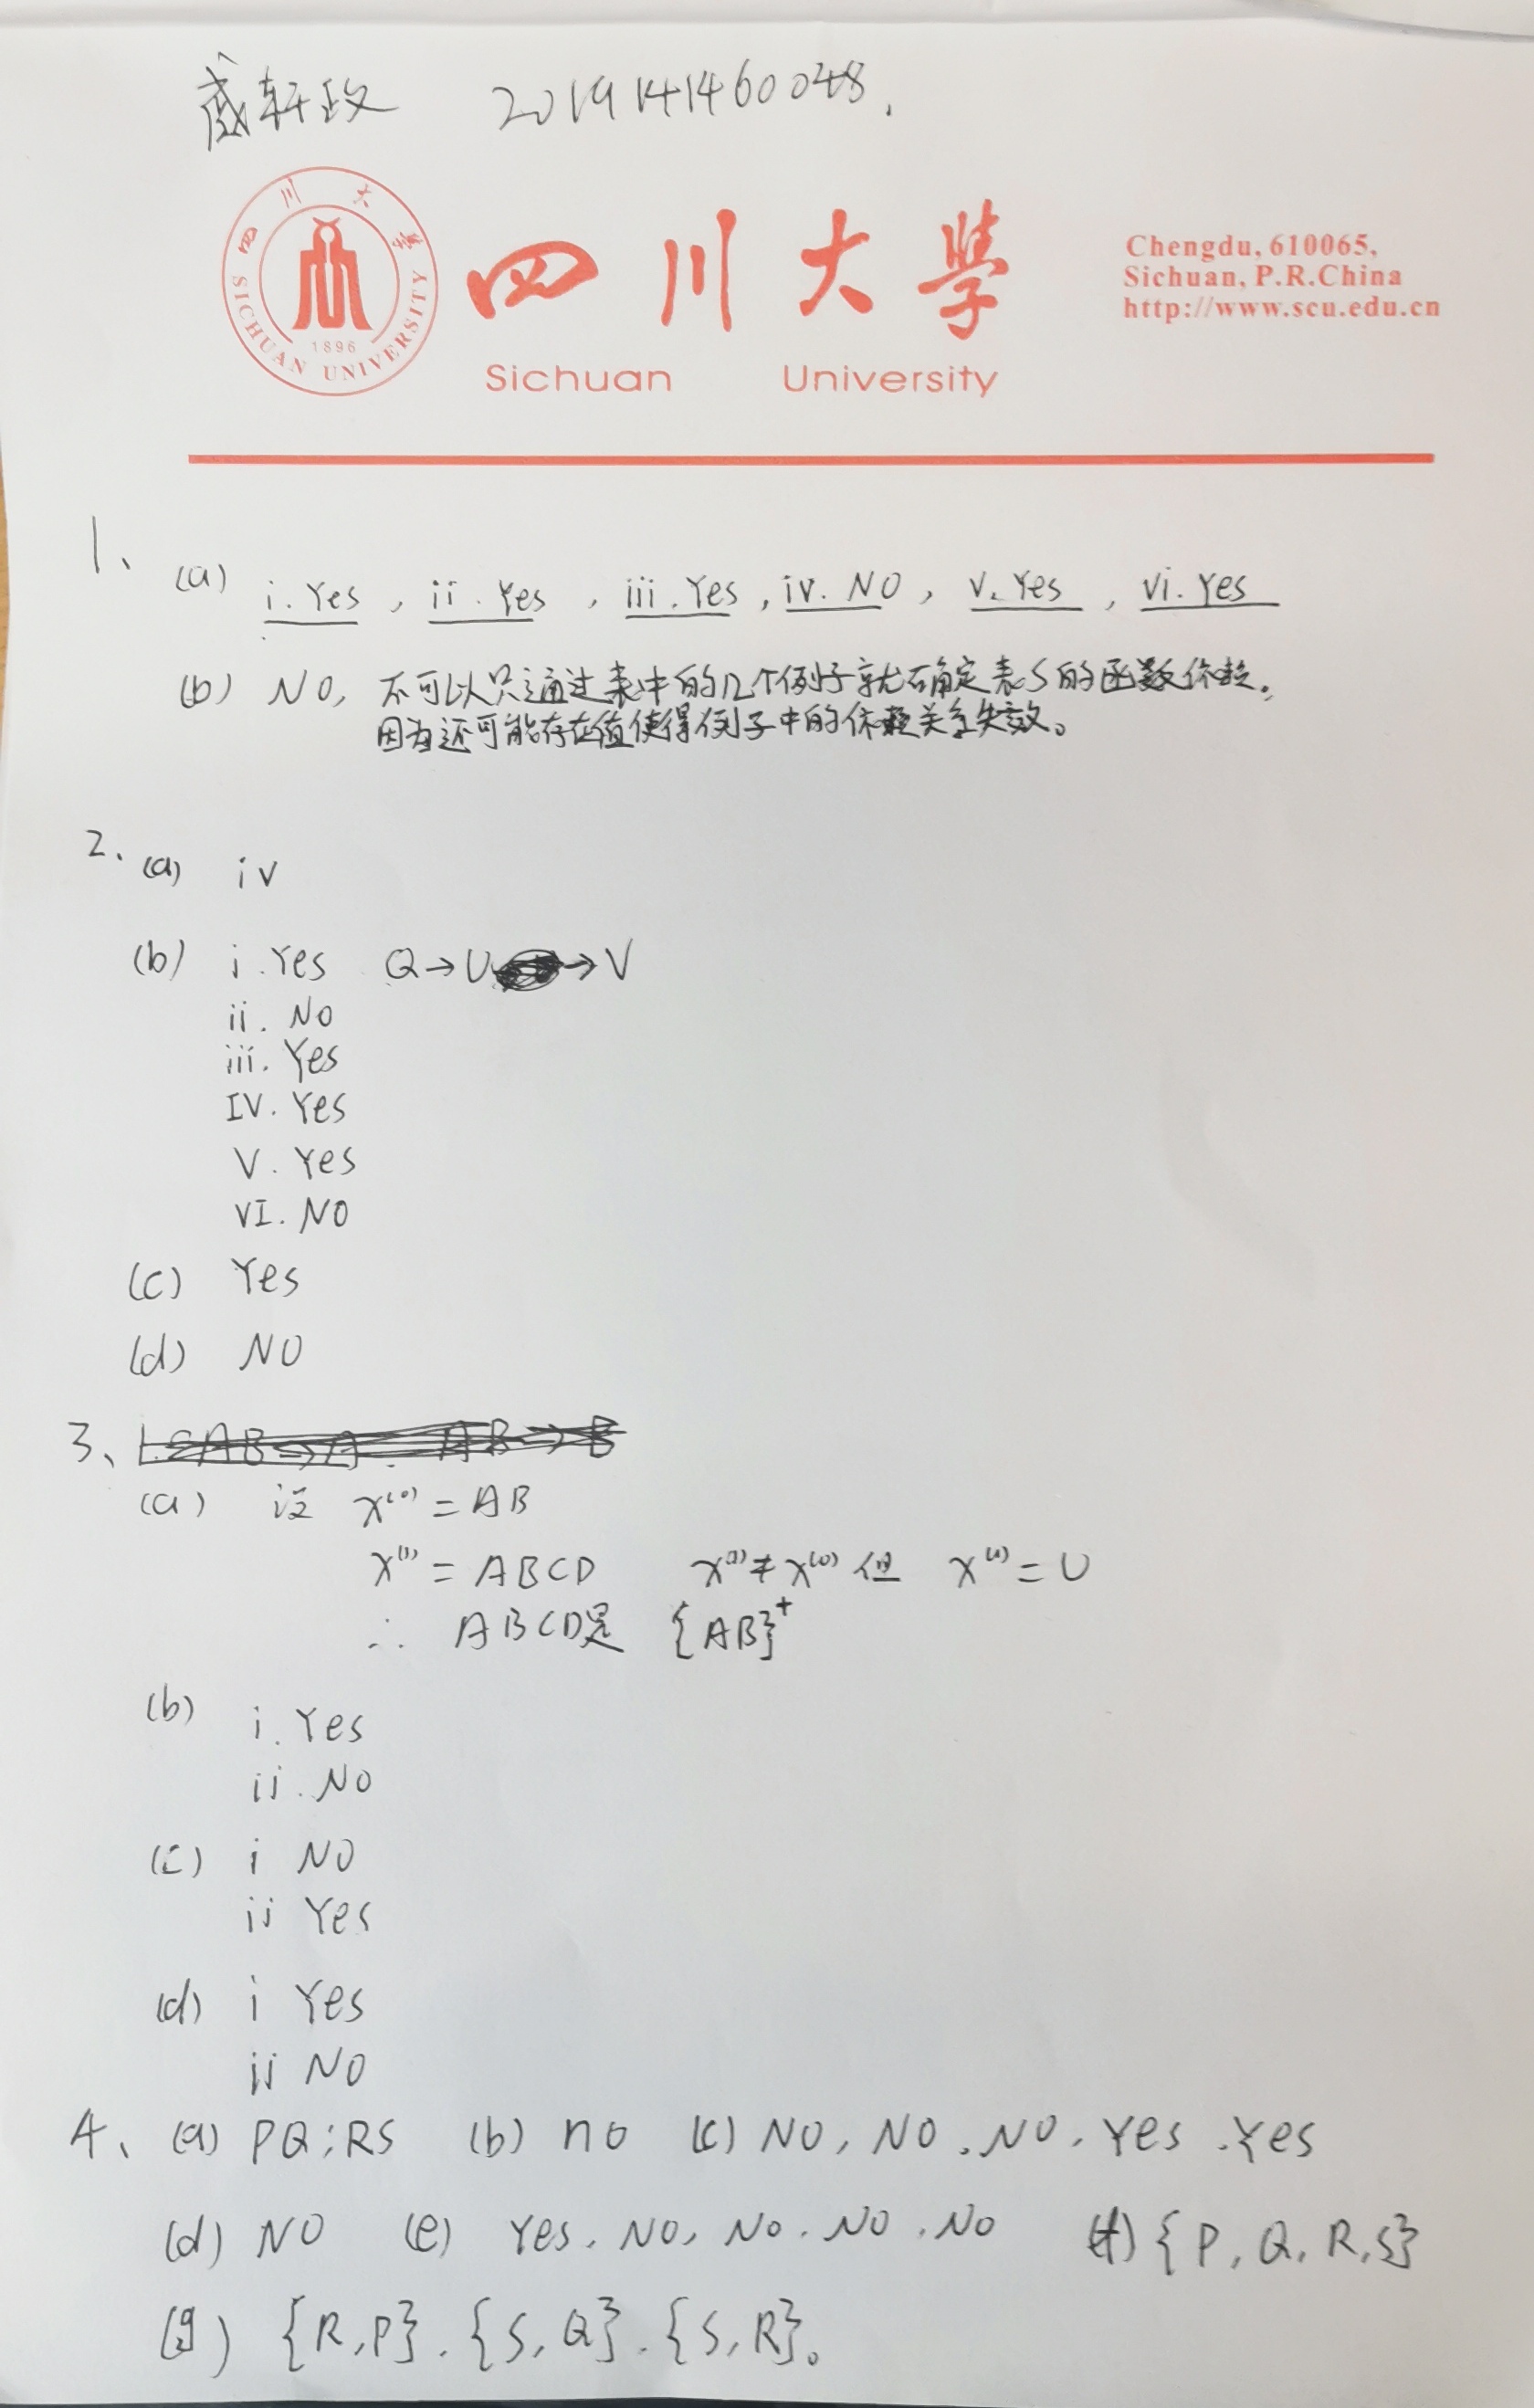 戚轩政 2019141460048.
四川大学
SICHUAN UNIVERSITY
1896
四川大學
Sichuan University
Chengdu, 610065,
Sichuan, P.R.China
http://www.scu.edu.cn
1、 (a) i. Yes , ii. Yes , iii. Yes , iv. NO , v. Yes , vi. Yes
(b) NO, 不可以只通过表中的几个例子就确定表S的函数依赖.
因为还可能存在值使得例子中的依赖关系失效。
2、 (a) iv
(b) i. Yes Q→U→V
ii. No
iii. Yes
IV. Yes
V. Yes
VI. NO
(c) Yes
(d) NO
3、
(a) 设 X⁽⁰⁾ = AB
X⁽¹⁾ = ABCD X⁽¹⁾ ≠ X⁽⁰⁾ 但 X⁽¹⁾ = U
∴ ABCD是 {AB}⁺
(b) i. Yes
ii. No
(c) i NO
ii Yes
(d) i Yes
ii NO
4、 (a) PQ;RS (b) no (c) NO, NO. NO. Yes. Yes
(d) NO (e) Yes. NO, No. NO. No (f) {P, Q, R, S}
(g) {R,P}. {S,Q}. {S,R}。